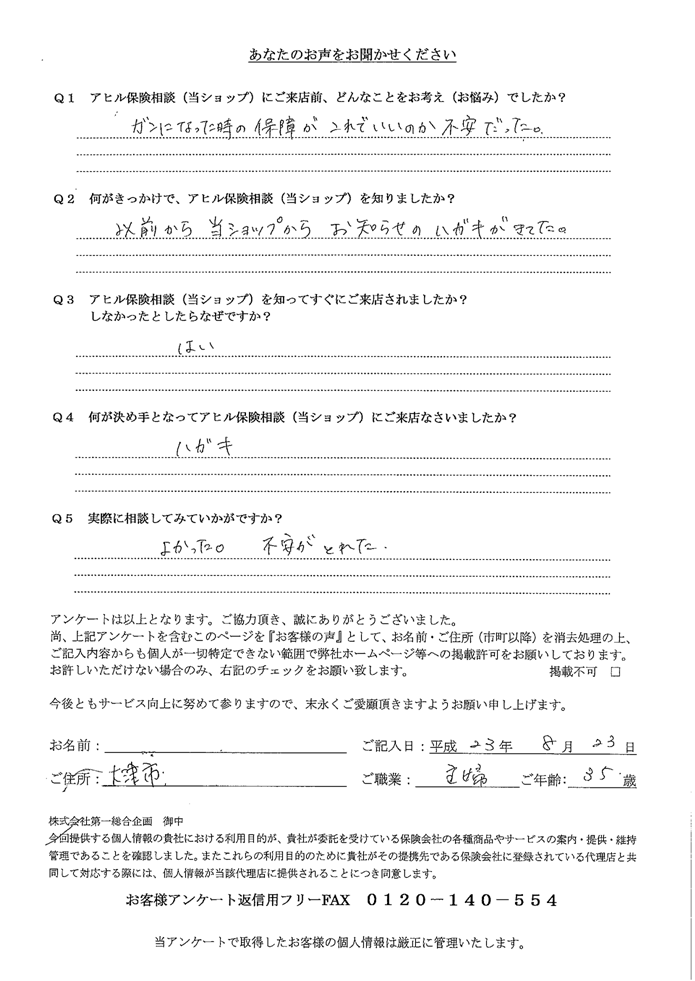 あなたのお声をお聞かせください
Q1 アヒル保険相談（当ショップ）にご来店前、どんなことをお考え（お悩み）でしたか？
ガンになった時の保障がこれでいいのか不安だった。
Q2 何がきっかけで、アヒル保険相談（当ショップ）を知りましたか？
以前から当ショップからお知らせのハガキがきてた。
Q3 アヒル保険相談（当ショップ）を知ってすぐにご来店されましたか？
しなかったとしたらなぜですか？
はい
Q4 何が決め手となってアヒル保険相談（当ショップ）にご来店なさいましたか？
ハガキ
Q5 実際に相談してみていかがですか？
よかった。 不安がとれた.
アンケートは以上となります。ご協力頂き、誠にありがとうございました。
尚、上記アンケートを含むこのページを『お客様の声』として、お名前・ご住所（市町以降）を消去処理の上、
ご記入内容からも個人が一切特定できない範囲で弊社ホームページ等への掲載許可をお願いしております。
お許しいただけない場合のみ、右記のチェックをお願い致します。 掲載不可 □
今後ともサービス向上に努めて参りますので、末永くご愛願頂きますようお願い申し上げます。
お名前： ご記入日：平成 23年 8月 23日
ご住所：大津市 ご職業： 主婦 ご年齢： 35 歳
株式会社第一総合企画 御中
今回提供する個人情報の貴社における利用目的が、貴社が委託を受けている保険会社の各種商品やサービスの案内・提供・維持
管理であることを確認しました。またこれらの利用目的のために貴社がその提携先である保険会社に登録されている代理店と共
同して対応する際には、個人情報が当該代理店に提供されることにつき同意します。
お客様アンケート返信用フリーFAX 0120－140－554
当アンケートで取得したお客様の個人情報は厳正に管理いたします。